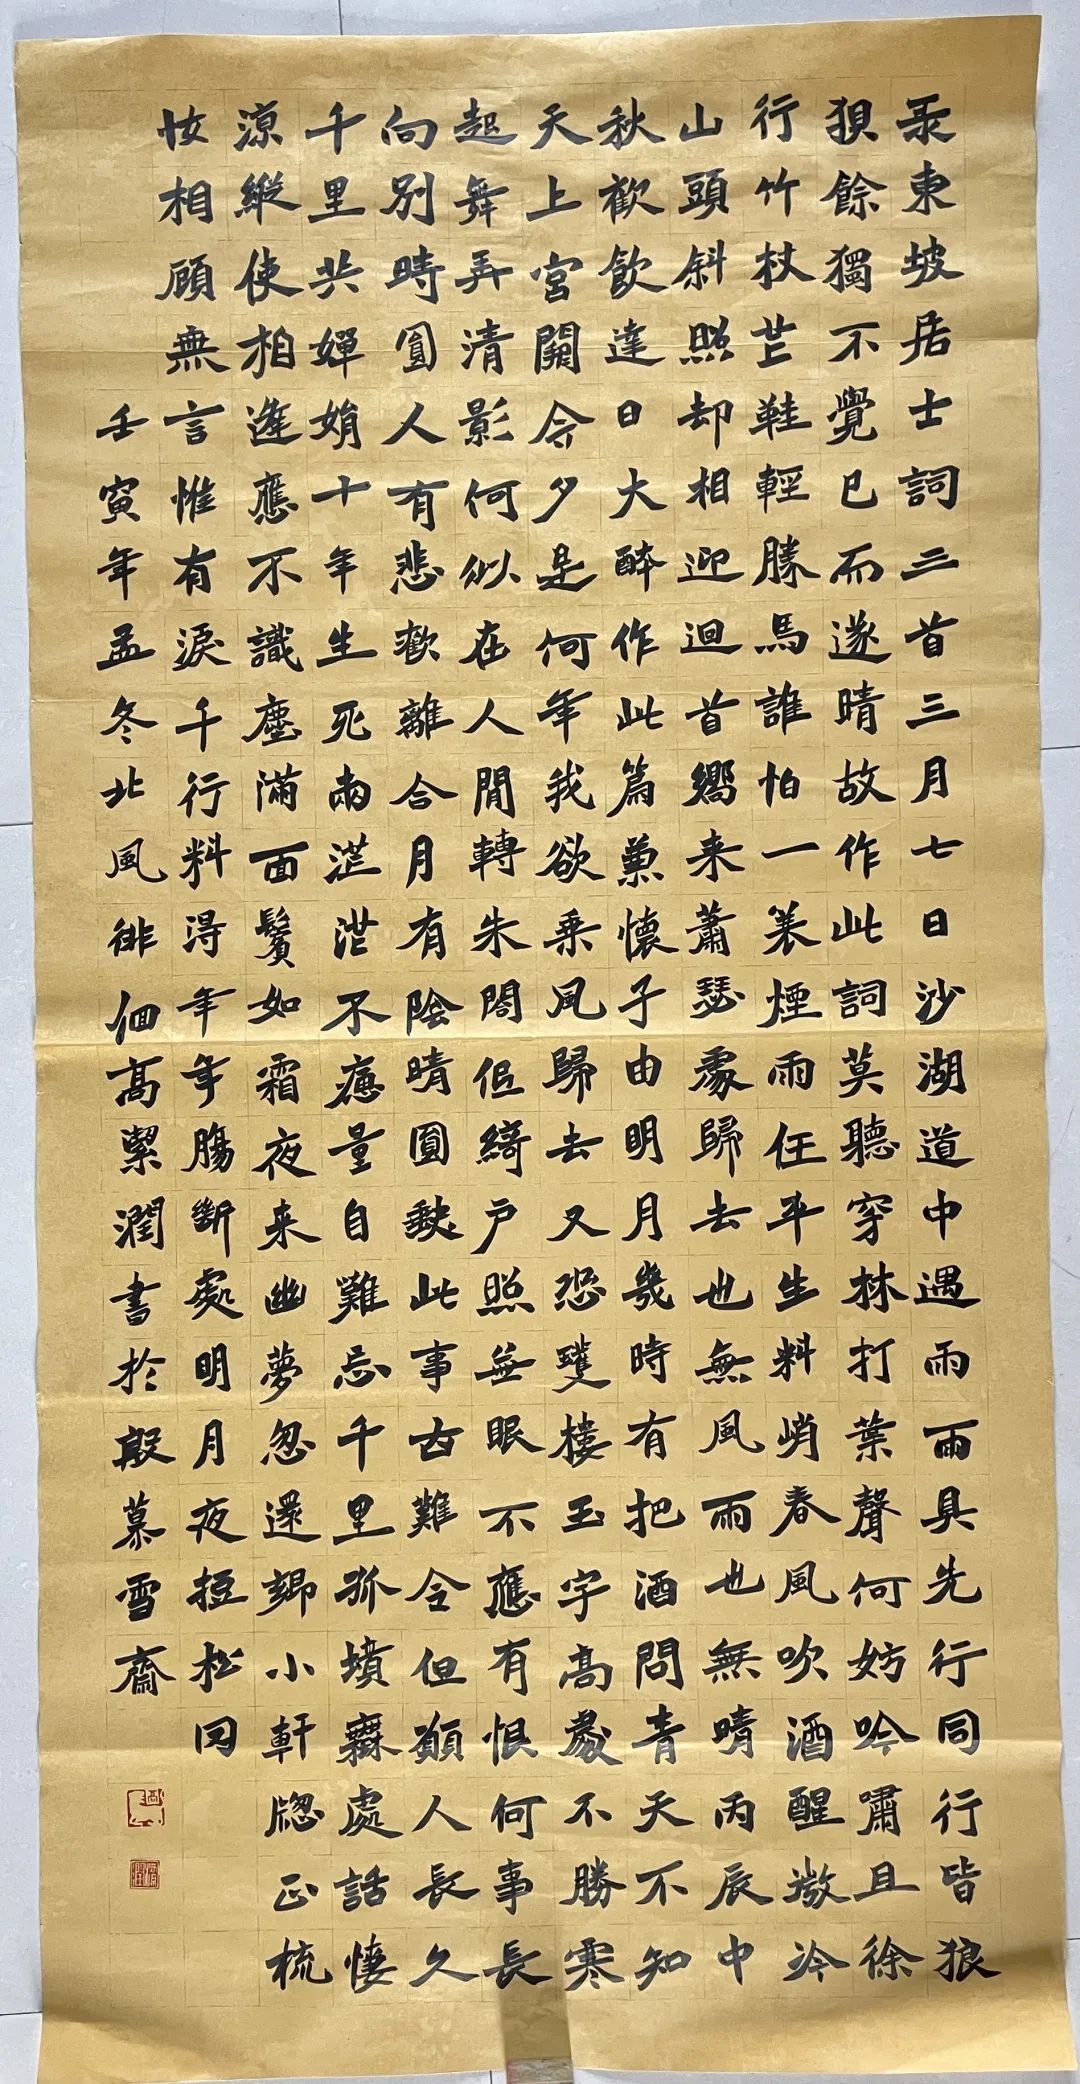 录東坡居士詞三首三月七日沙湖道中遇雨雨具先行同行皆狼
狽餘獨不覺已而遂晴故作此詞莫聽穿林打葉聲何妨吟嘯且徐
行竹杖芒鞋輕勝馬誰怕一蓑煙雨任平生料峭春風吹酒醒微冷
山頭斜照却相迎迴首嚮来蕭瑟處歸去也無風雨也無晴丙辰中
秋歡飲達日大醉作此篇兼懷子由明月幾時有把酒問青天不知
天上宮闕今夕是何年我欲乘風歸去又恐瓊樓玉宇高處不勝寒
起舞弄清影何似在人間轉朱閣低綺戶照無眠不應有恨何事長
向別時圓人有悲歡離合月有陰晴圓缺此事古難全但願人長久
千里共嬋娟十年生死兩茫茫不思量自難忘千里孤墳無處話悽
涼縱使相逢應不識塵滿面鬢如霜夜来幽夢忽還鄉小軒窗正梳
妝相顧無言惟有淚千行料得年年腸斷處明月夜短松冈
壬寅年孟冬北風徘徊高潔潤書於殷慕雪齋